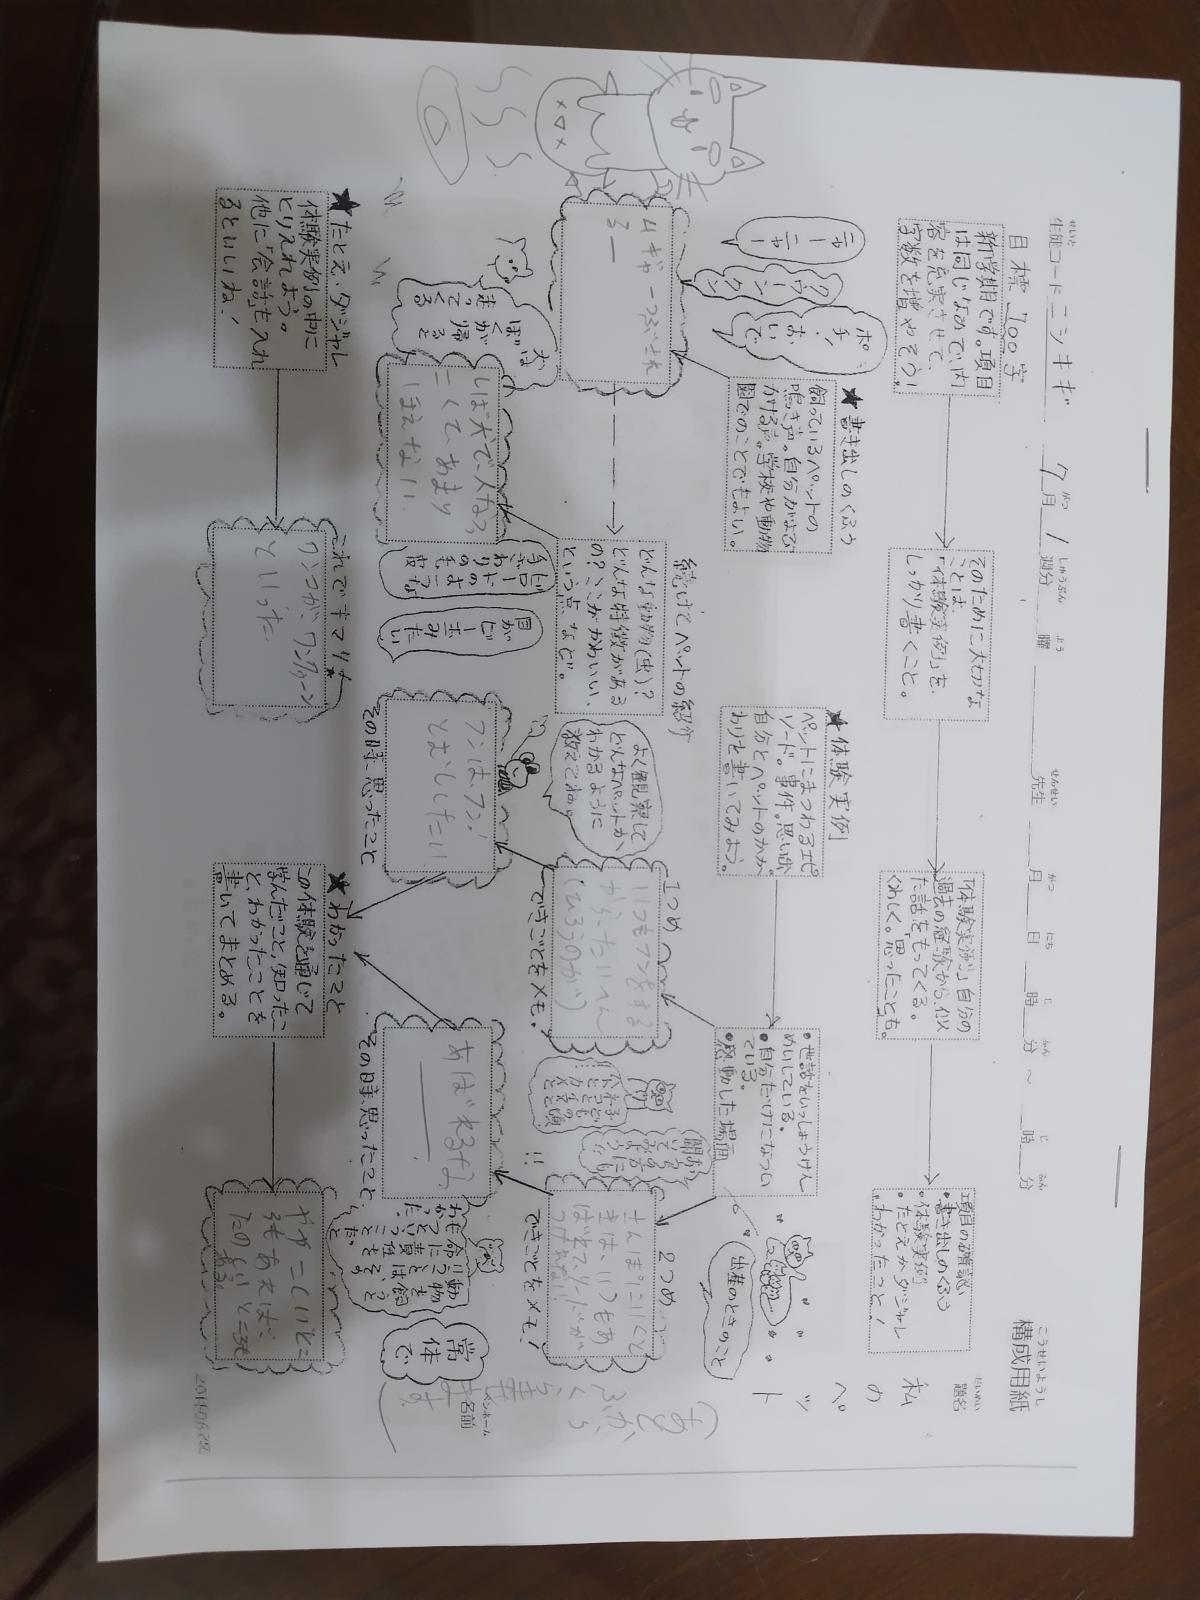 構成用紙
こうせいようし
生徒コード ニシキギ 7月 1週分 曜 先生 月 日 時 分 ～ 時 分
せいと がつ しゅうぶん よう せんせい がつ にち じ ふん じ ふん
題名
だいめい
私のペット
ペンネーム
名前
目標 700字
新学期です。項目
は同じなので、内
容を充実させて、
字数を増やそう!
そのために大切な
ことは、
「体験実例」を、
しっかり書くこと。
「体験実例」自分の
過去の経験から、似
た話をもってくる。
くわしく。思ったことも。
項目の確認
・書き出しのくふう
・体験実例
・たとえかダジャレ
・わかったこと!
★書き出しのくふう
飼っているペットの
鳴き声。自分がよぶ
かける声。学校や動物
園でのことでもよい。
ニャーニャー
クゥーンクゥーン
ポチ、おいで
ムギャーつぶされ
るー
続けてペットの紹介
どんな動物(虫)?
どんな特徴がある
の?ここがかわいい、
という点など。
ぼくが帰ると
走ってくる
しば犬で、人なつ
こくて、あまり
ほえない
ビロードのような
手ざわりの毛皮
目がビー玉みたい
よく観察して
どんなペットか、
わかるように
教えてね。
★体験実例
ペットにまつわるエピ
ソード。事件。思い出。
自分とペットのかか
わりを書いてみよう。
・世話をいっしょうけん
めいしている。
・自分だけになつい
ている。
・感動した場面
出産のときのこと
1つめ
いつもフンをする
からたいへん
(ひろうのが)
できごとをメモ。
フンは、フン!
とむししたい
その時、思ったこと
2つめ
さんぽに行くと
きは、いつもあ
ばれてリードが
できごとをメモ!
!!
あばれるなよ
その時、思ったこと
動物を飼う
常体で
★たとえ・ダジャレ
体験実例の中に
とりいれよう。
他に「会話」も入れ
るといいね!
これでキマリ★
ワンコが、ワンクゥーン
といった
★わかったこと
この体験を通じて
学んだこと、知ったこ
と、わかったことを
書いてまとめる。
ややこしいとこ
ろもあれば、
たのしいところも
ある。